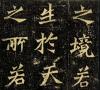 之境若
生於天
之所若